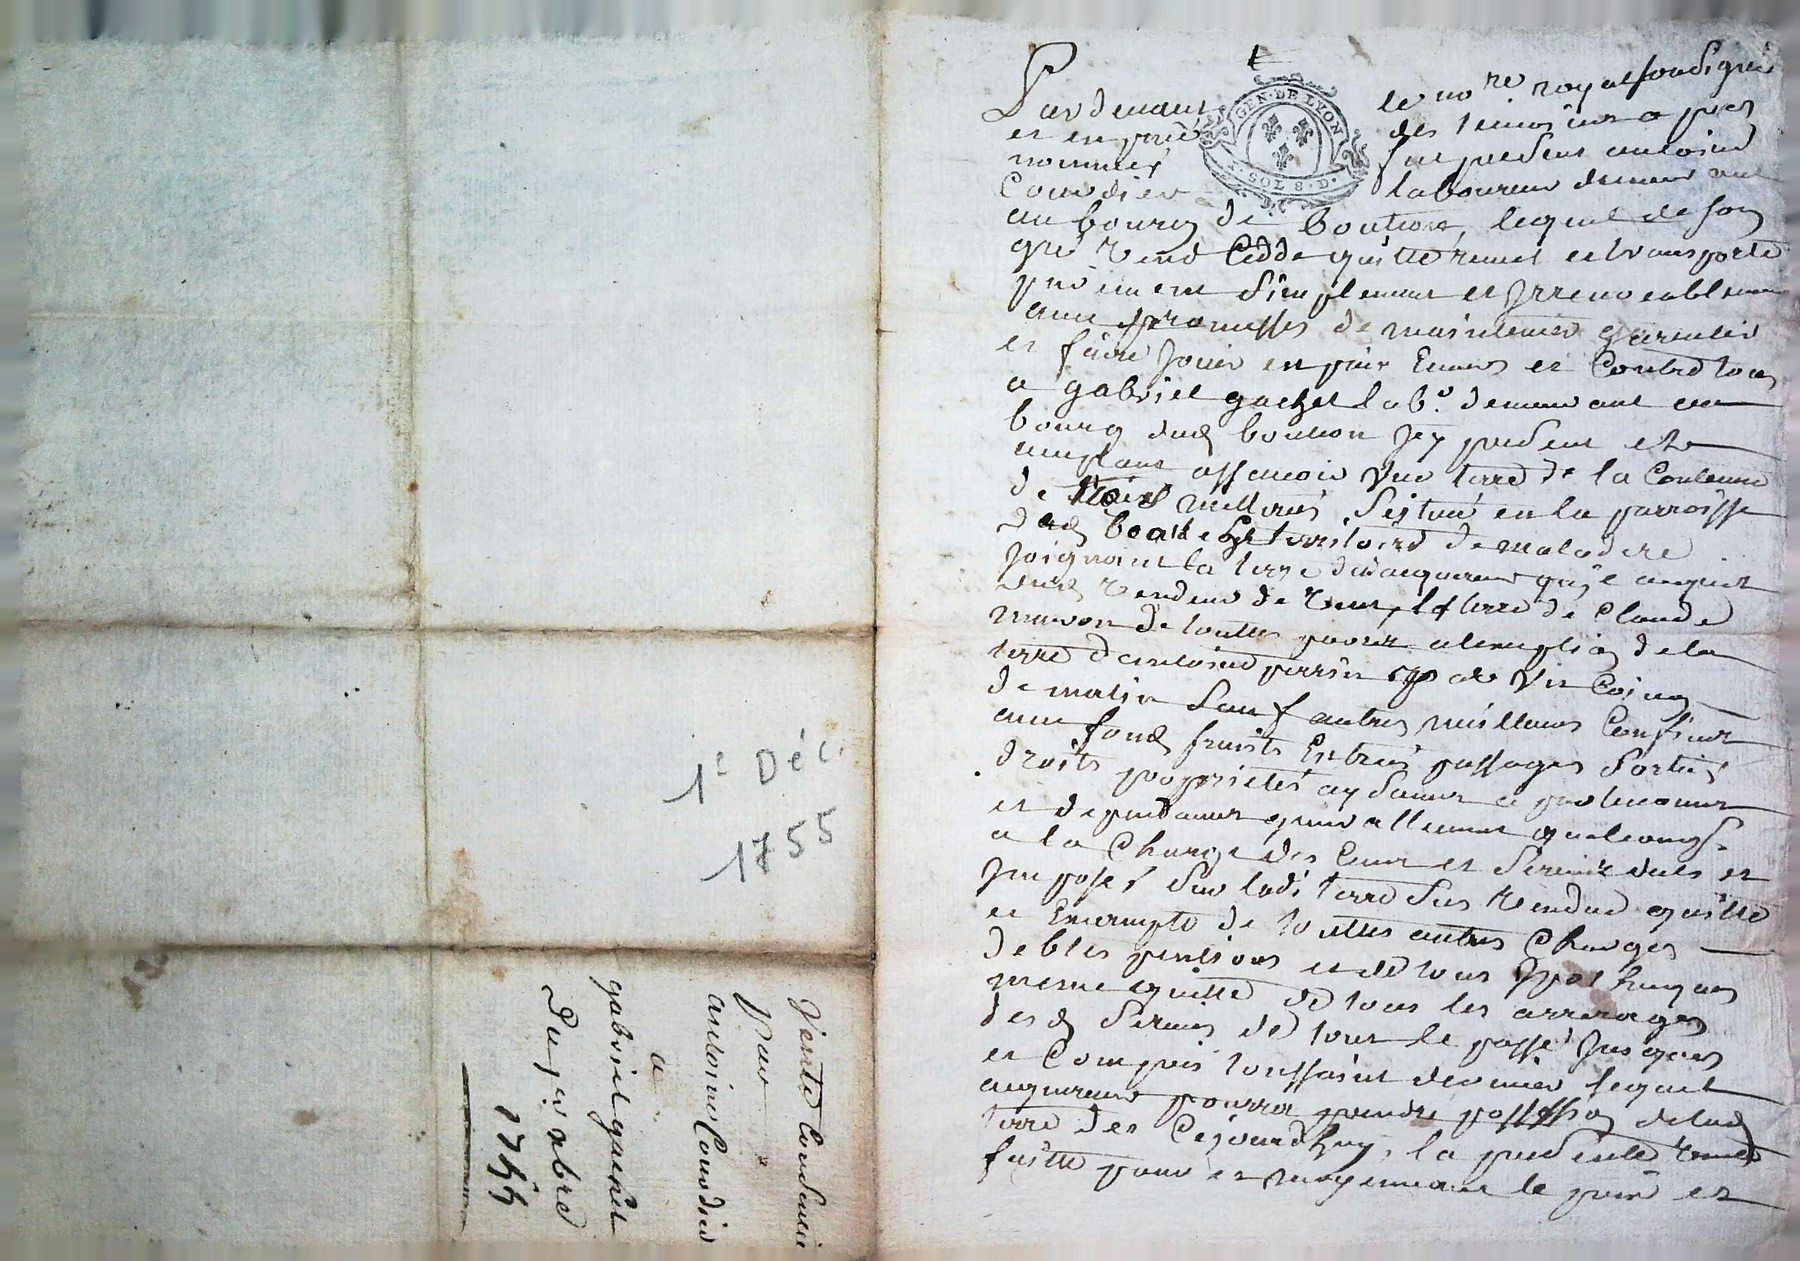 1e Déc.
1755
Vente Consentie
par
antoine Courdier
a
gabriel gachet
Du per xbre
1755
GEN · DE LYON
SOL 8 · D ·
Pardevant le nore royal soussigné
et en pnce des temoins a pres
nommés fut present antoine
Courdier laboureur demeurant
au bourg de bouteon, lequel de son
gré vend cedde quitte remet et transporte
purement simplement et jrrevocablement
avec promesses de maintenir garentir
et faire jouir en paix Envers et Contre tous
a gabriel gachet labr demeurant au
bourg dud bouteon jcy present et
acceptant assavoir une terre de la Contenue
de trois situé en la parroisse
dud territoire de maladere
joignant la terre dud acquereur
dud vendeur de vent, la terre de Claude
de la
terre d'antoine perrin
de matin sauf autres meilleurs Confins
avec fonds fruits Entrés passages sorties
droits proprietés aysances appartenances
et dependances generallement quelconqs
a la Charge des Cens et servis dues et
jmposés sur ladi terre sus vendue quitte
et Exempte de touttes autres Charges
debtes pensions et de tous hypotheques
meme quitte de tous les arrerages
desd servis de tout le passé jusques
et Compris toussaint dernier lequel
acquereur pourra prendre possession de lad
terre des Cejourdhuy, la presente vente
faitte pour et moyennant le prix et